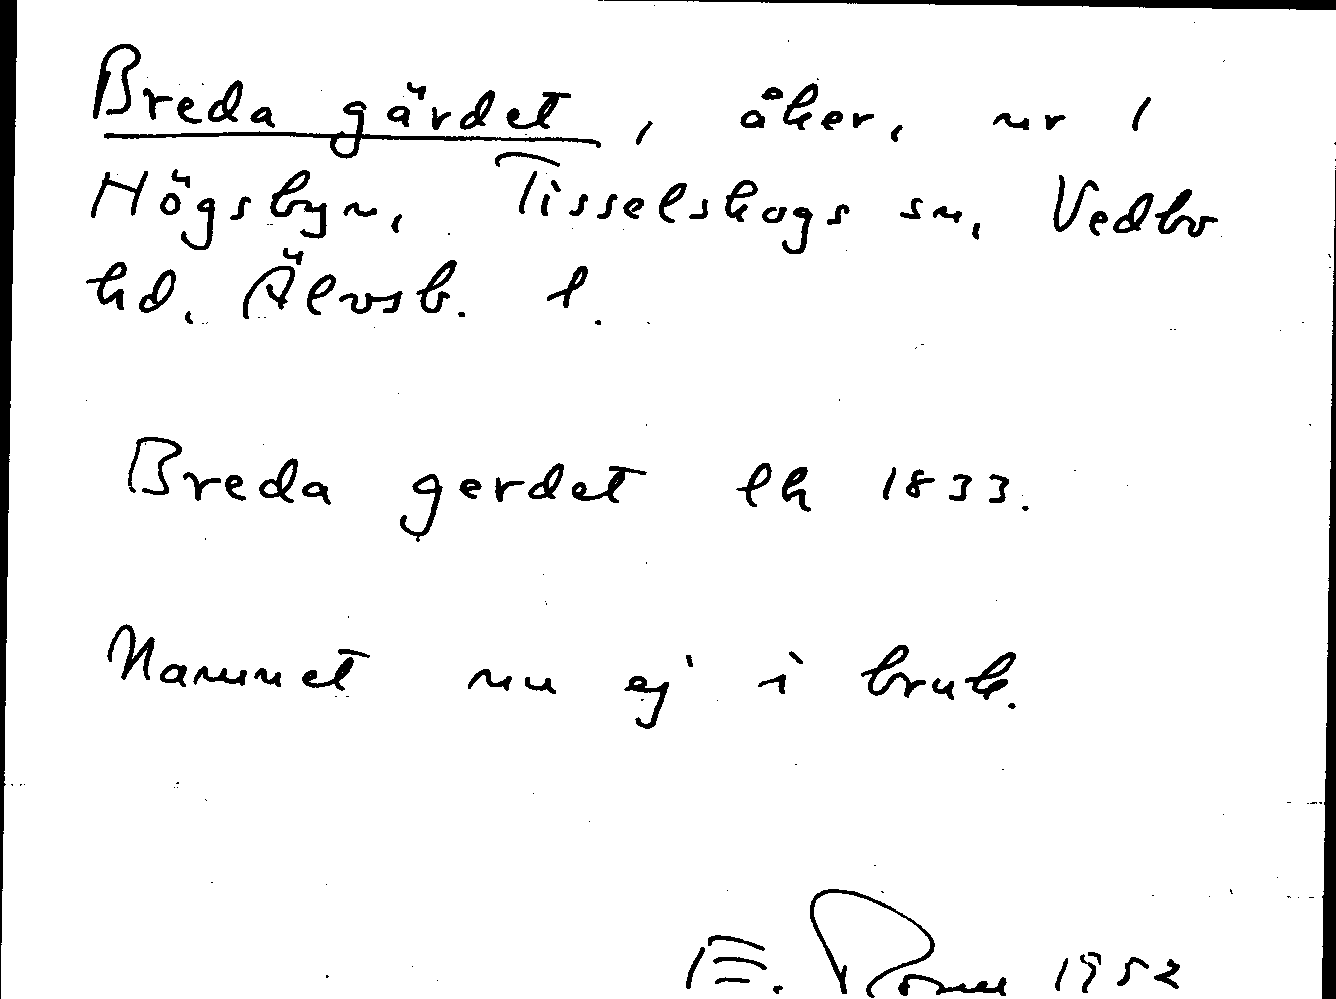 Breda gärdet, åker, nr 1
Högsbyn, Tisselskogs sn, Vedbo
hd, Älvsb. l.
Breda gerdet lk 1833.
Namnet nu ej i bruk.
E. 1952